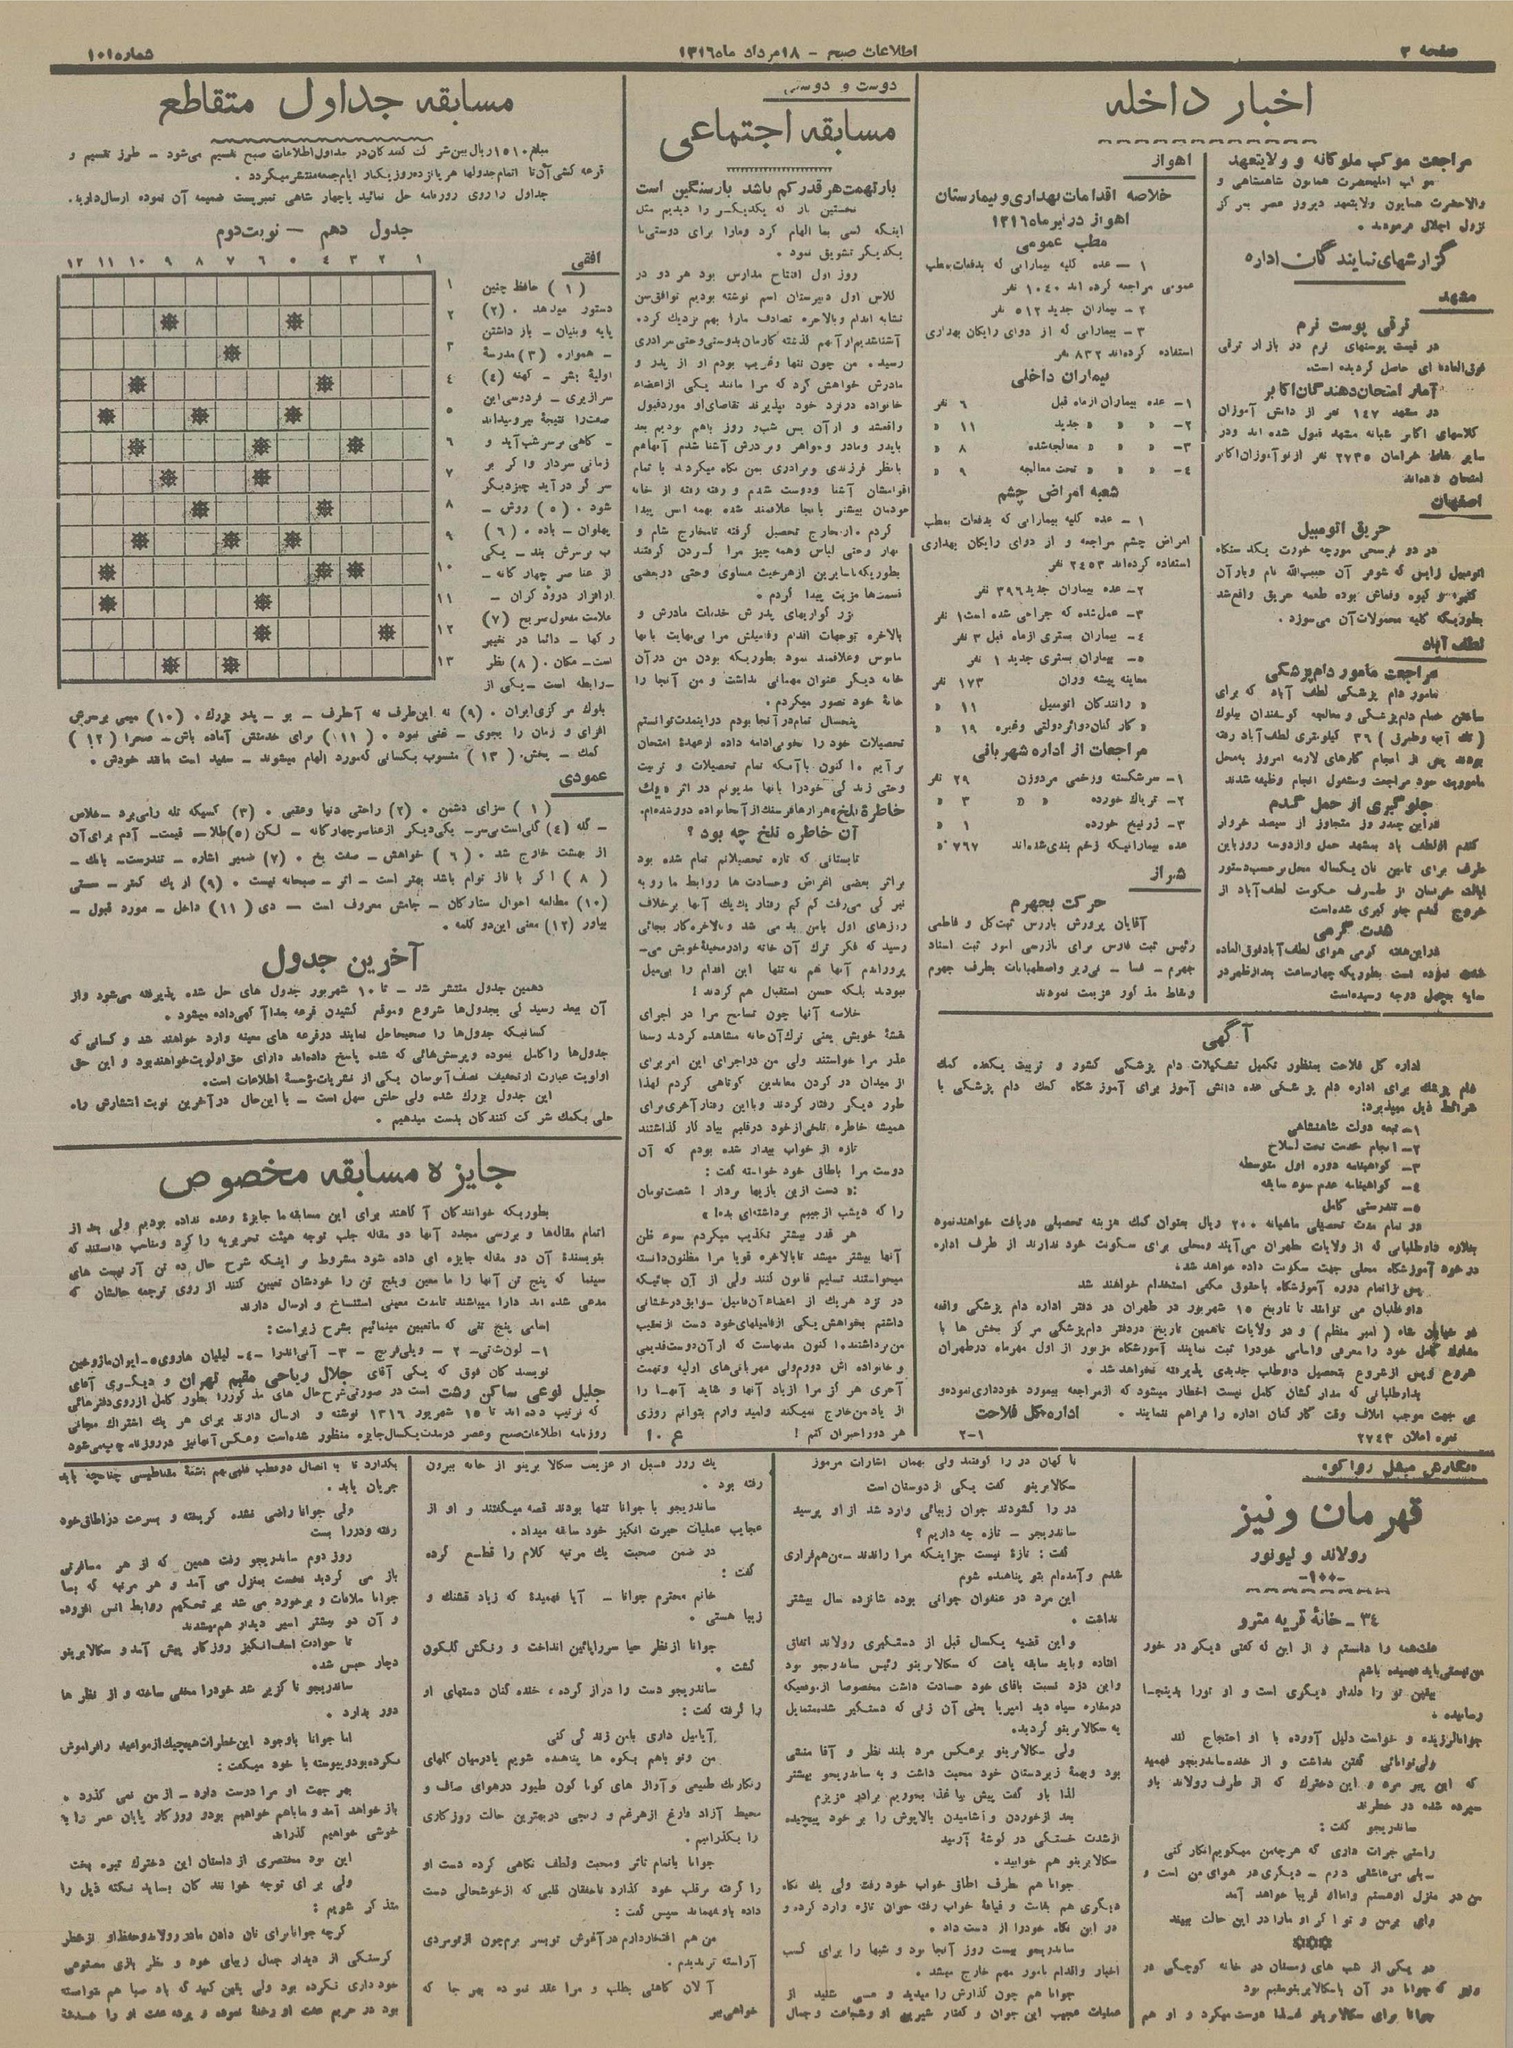 صفحه ۳
اطلاعات صبح - ۱۸ مرداد ماه ۱۳۱۶
شماره ۱۰۱
اخبار داخله
مراجعت موکب ملوکانه و ولایتعهد
موکب اعلیحضرت همایون شاهنشاهی و
والاحضرت همایون ولایتعهد دیروز عصر بمرکز
نزول اجلال فرمودند .
گزارشهای نمایندگان اداره
مشهد
ترقی پوست نرم
در قیمت پوستهای نرم در بازار ترقی
فوق‌العاده ای حاصل گردیده است.
آمار امتحان دهندگان اکابر
در مشهد ۱۴۷ نفر از دانش آموزان
کلاسهای اکابر شبانه مشهد قبول شده اند و در
سایر نقاط خراسان ۲۷۳۵ نفر از نوآموزان اکابر
امتحان داده‌اند
اصفهان
حریق اتومبیل
در دو فرسخی مورچه خورت یکدستگاه
اتومبیل زایس که شوفر آن حبیب‌الله نام و بار آن
کتیرا و گیوه و قماش بوده طعمه حریق واقع شد
بطوریکه کلیه محمولات آن می‌سوزد .
لطف آباد
مراجعت مامور دام‌پزشکی
مامور دام پزشکی لطف آباد که برای
ساختن حمام دام‌پزشکی و معالجه گوسفندان ببلوک
( تک آب و طبرش ) ۳۶ کیلومتری لطف آباد رفته
بودند پس از انجام کارهای لازمه امروز به‌محل
ماموریت خود مراجعت و مشغول انجام وظیفه شدند
جلوگیری از حمل گندم
در این چند روز متجاوز از سیصد خروار
گندم از لطف آباد بمشهد حمل و از دوسه روز باین
طرف برای تامین نان یکساله محل بر حسب دستور
ایالت خراسان از طرف حکومت لطف آباد از
خروج گندم جلو گیری شده است
شدت گرمی
در این هفته گرمی هوای لطف آباد فوق‌العاده
شدت نموده است بطوریکه چهار ساعت بعد از ظهر در
سایه بچهل درجه رسیده است
اهواز
خلاصه اقدامات بهداری و بیمارستان
اهواز در تیر ماه ۱۳۱۶
مطب عمومی
۱ - عده کلیه بیمارانی که بدفعات بمطب
عمومی مراجعه کرده اند ۱۰۴۰ نفر
۲- بیماران جدید ۵۱۲ نفر
۳- بیمارانی که از دوای رایگان بهداری
استفاده کرده‌اند ۸۳۲ نفر
بیماران داخلی
۱- عده بیماران از ماه قبل ۶ نفر
۲- « « جدید ۱۱ «
۳- « « معالجه‌شده ۸ «
۴- « « تحت معالجه ۹ «
شعبه امراض چشم
۱ - عده کلیه بیمارانی که بدفعات بمطب
امراض چشم مراجعه و از دوای رایگان بهداری
استفاده کرده‌اند ۲۴۵۳ نفر
۲- عده بیماران جدید ۳۹۶ نفر
۳- عمل‌شده که جراحی شده است ۱ نفر
۴- بیماران بستری از ماه قبل ۳ نفر
۵- بیماران بستری جدید ۱ نفر
معاینه پیشه وران ۱۷۳ نفر
« رانندگان اتومبیل ۱۱ «
« کارکنان دوائر دولتی و غیره ۱۹ «
مراجعات از اداره شهربانی
۱- سرشکسته و زخمی مرد و زن ۲۹ نفر
۲- تریاک خورده « « ۳ «
۳- زرنیخ خورده ۱ «
عده بیمارانیکه زخم بندی شده‌اند ۷۶۷ «
شیراز
حرکت بجهرم
آقایان پرورش بازرس ثبت کل و فاطمی
رئیس ثبت فارس برای بازرسی امور ثبت اسناد
جهرم - فسا - نی‌ریز و اصطهبانات بطرف جهرم
و نقاط مذکور عزیمت نمودند
آگهی
اداره کل فلاحت بمنظور تکمیل تشکیلات دام پزشکی کشور و تربیت یکعده کمک
دام پزشک برای اداره دام پزشکی عده دانش آموز برای آموزشگاه کمک دام پزشکی با
شرائط ذیل میپذیرد:
۱- تبعه دولت شاهنشاهی
۲- انجام خدمت تحت‌السلاح
۳- گواهینامه دوره اول متوسطه
۴- گواهینامه عدم سوء سابقه
۵- تندرستی کامل
در تمام مدت تحصیلی ماهیانه ۲۰۰ ریال بعنوان کمک هزینه تحصیلی دریافت خواهند نمود
بعلاوه داوطلبانی که از ولایات طهران می‌آیند و محلی برای سکونت خود ندارند از طرف اداره
در خود آموزشگاه محلی جهت سکونت داده خواهد شد.
پس از اتمام دوره آموزشگاه باحقوق مکفی استخدام خواهند شد
داوطلبان می توانند تا تاریخ ۱۵ شهریور در طهران در دفتر اداره دام پزشکی واقعه
در خیابان شاه ( امیر منظم ) و در ولایات تا همین تاریخ در دفتر دام‌پزشکی مرکز بخش ها با
مدارک کامل خود را معرفی و اسامی خود را ثبت نمایند آموزشگاه مزبور از اول مهرماه در طهران
شروع و پس از شروع بتحصیل داوطلب جدیدی پذیرفته نخواهد شد .
بداوطلبانی که مدارکشان کامل نیست اخطار میشود که از مراجعه بیمورد خودداری نموده و
بی جهت موجب اتلاف وقت کارکنان اداره را فراهم ننمایند .
اداره کل فلاحت
نمره اعلان ۲۷۴۳
۲-۱
دوست و دوستی
مسابقه اجتماعی
بار تهمت هر قدر کم باشد بار سنگین است
نخستین بار که یکدیگر را دیدیم مثل
اینکه کسی بما الهام کرد و ما را برای دوستی با
یکدیگر تشویق نمود .
روز اول افتتاح مدارس بود هر دو در
کلاس اول دبیرستان اسم نوشته بودیم توافق سن
تشابه اندام و بالاخره تصادف ما را بهم نزدیک کرد.
آشنا شدیم از آنهم گذشته کارمان بدوستی و حتی برادری
رسید . من چون تنها و غریب بودم او از پدر و
مادرش خواهش کرد که مرا مانند یکی از اعضاء
خانواده در نزد خود بپذیرند تقاضای او مورد قبول
واقع شد و از آن پس شب و روز باهم بودیم بعد
با پدر و مادر و خواهر و برادرش آشنا شدم آنها هم
بانظر فرزندی و برادری بمن نگاه میکردند با تمام
اقوامشان آشنا و دوست شدم و رفته رفته از خانه
خودمان بیشتر بآنجا علاقمند شده بهمه انس پیدا
کردم . از مخارج تحصیل گرفته تا مخارج شام و
نهار و حتی لباس و همه چیز مرا گردن گرفتند
بطوریکه با سایرین از هر حیث مساوی و حتی در بعضی
قسمت‌ها مزیت پیدا کردم .
بزرگواریهای پدرش خدمات مادرش و
بالاخره توجهات اقدام و فامیلش مرا بی‌نهایت بآنها
مانوس و علاقمند نمود بطوریکه بودن من در آن
خانه دیگر عنوان مهمانی نداشت و من آنجا را
خانهٔ خود تصور میکردم .
پنجسال تمام در آنجا بودم در اینمدت توانستم
تحصیلات خود را بخوبی ادامه داده از عهدهٔ امتحان
برآیم . اکنون با آنکه تمام تحصیلات و تربیت
وحتی زندگی خود را بآنها مدیونم در اثر « یک
خاطره تلخ » هزارها فرسنگ از آنخانواده دور شده‌ام.
آن خاطره تلخ چه بود ؟
تابستانی که تازه تحصیلاتم تمام شده بود
براثر بعضی اغراض و حسادت ها روابط ما رو به
تیرگی می‌رفت کم کم رفتار یک یک آنها برخلاف
روزهای اول بامن بد می شد و بالاخره کار بجائی
رسید که فکر ترک آن خانه را در مخیلهٔ خویش می-
پروراندم آنها هم نه تنها این اقدام را بی‌میل
نبودند بلکه حسن استقبال هم کردند !
خلاصه آنها چون تسامح مرا در اجرای
نقشهٔ خویش یعنی ترک آن خانه مشاهده کردند رسما
عذر مرا خواستند ولی من در اجرای این امر برای
از میدان در کردن معاندین کوتاهی کردم لهذا
طور دیگر رفتار کردند و با این رفتار آخری برای
همیشه خاطره تلخی از خود در قلبم بیادگار گذاشتند
تازه از خواب بیدار شده بودم که آن
دوست مرا باطاق خود خواسته گفت :
« دست از این بازیها بردار ! شصت تومان
را که دیشب از جیبم برداشته‌ای بده ! »
هر قدر بیشتر تکذیب میکردم سوء ظن
آنها بیشتر میشد تا بالاخره قویا مرا مظنون دانسته
میخواستند تسلیم قانون کنند ولی از آن جائیکه
در نزد هر یک از اعضاء آن فامیل سوابق درخشانی
داشتم بخواهش یکی از فامیلهای خود دست از تعقیب
من برداشتند . اکنون مدتهاست که از آن دوست قدیمی
و خانواده اش دورم ولی مهربانی‌های اولیه و تهمت
آخری هرگز مرا از یاد آنها و شاید آنها را
از یاد من خارج نمیکند و امید وارم بتوانم روزی
هر دو را جبران کنم !
ع . ا
مسابقه جداول متقاطع
مبلغ ۱۵۱۰ ریال بین شرکت کنندگان در جداول اطلاعات صبح تقسیم می‌شود - طرز تقسیم و
قرعه کشی آن تا اتمام جدولها هر پانزده روز یکبار ایام جمعه منتشر میگردد .
جداول را روی روزنامه حل نمائید با چهار شاهی تمبر پست ضمیمه آن نموده ارسال دارید.
جدول دهم - نوبت دوم
۱ ۲ ۳ ۴ ۵ ۶ ۷ ۸ ۹ ۱۰ ۱۱ ۱۲
۱
۲
۳
۴
۵
۶
۷
۸
۹
۱۰
۱۱
۱۲
۱۳
افقی
( ۱ ) حافظ چنین
دستور میدهد . (۲)
پایه و بنیان - باز داشتن
- همواره (۳) مدرسهٔ
اولیهٔ بشر - کهنه (۴)
سرازیری - فردوسی این
صفت را نتیجهٔ نیرو میداند
- گاهی بر سر شب آید و
زمانی سردار و اگر بر
سر گر در آید چیز دیگر
شود . (۵) روش -
پهلوان - باده . (۶)
ب بر سرش بند - یکی
از عناصر چهارگانه -
ابزار درودگران -
علامت مفعول صریح (۷)
رگها - دائما در تغییر
است - مکان . (۸) نظر
- رابطه است - یکی از
بلوک مرکزی ایران . (۹) نه این‌طرف نه آنطرف - بو - پدر بزرگ . (۱۰) میمی بر سرش
افزای و زمان را بجوی - غنی نبود . (۱۱) برای خدمتش آماده باش - صحرا (۱۲)
کمک - پخش. (۱۳) منسوب بکسانی که مورد الهام میشوند - سفید است مانند خودش .
عمودی
( ۱ ) سزای دشمن . (۲) راحتی دنیا و عقبی . (۳) کسیکه گله را می‌برد - خلاص
- گله (۴) گلی است بی سر - یکی دیگر از عناصر چهارگانه - لکن (۵) طلا - قیمت - آدم برای آن
از بهشت خارج شد . ( ۶ ) خواهش - صفت یخ . (۷) ضمیر اشاره - تندرست - بانک -
( ۸ ) اگر با ناز توام باشد بهتر است - اثر - صبحانه نیست . (۹) از یک کمتر - سستی
(۱۰) مطالعه احوال ستارگان - جامش معروف است - دی (۱۱) داخل - مورد قبول -
بیاور (۱۲) معنی این دو کلمه .
آخرین جدول
دهمین جدول منتشر شد - تا ۱۰ شهریور جدول های حل شده پذیرفته می‌شود و از
آن ببعد رسیدگی بجدولها شروع و موقع کشیدن قرعه بعدا آگهی داده میشود .
کسانیکه جدول‌ها را صحیحا حل نمایند در قرعه های معینه وارد خواهند شد و کسانی که
جدول‌ها را کامل نموده و پرسش‌هائی که شده پاسخ داده‌اند دارای حق اولویت خواهند بود و این حق
اولویت عبارت از تخفیف نصف آبونمان یکی از نشریات مؤسسهٔ اطلاعات است.
این جدول بزرگ شده ولی حلش سهل است - با این حال در آخرین نوبت انتشارش راه
حلی بکمک شرکت کنندگان بدست میدهیم .
جایزه مسابقه مخصوص
بطوریکه خوانندگان آگاهند برای این مسابقه ما جایزهٔ وعده نداده بودیم ولی بعد از
اتمام مقاله‌ها و بررسی مجدد آنها دو مقاله جلب توجه هیئت تحریریه را کرد و مناسب دانستند که
بنویسندهٔ آن دو مقاله جایزه ای داده شود مشروط بر اینکه شرح حال ده تن آرتیست های
سینما که پنج تن آنها را ما معین و پنج تن را خودشان تعیین کنند از روی ترجمه حالشان که
مدعی شده اند دارا میباشند تا مدت معینی استنساخ و ارسال دارند
اسامی پنج تنی که ما تعیین مینمائیم بشرح زیر است :
۱- لون‌شانی - ۲ - ویلی‌فریچ - ۳- آنی‌اندرا - ۴- لیلیان هاروی ۵- ایوان ماژوخین
نویسندگان فوق که یکی آقای جلال ریاحی مقیم تهران و دیگری آقای
جلیل لوعی ساکن رشت است در صورتی شرح حال های مذکور را بطور کامل از روی دفترهائی
که ترتیب داده اند تا ۱۵ شهریور ۱۳۱۶ نوشته و ارسال دارند برای هر یک اشتراک مجانی
روزنامه اطلاعات صبح و عصر در مدت یکسال جایزه منظور شده است و عکس آنها نیز در روزنامه چاپ می‌شود
نگارش میشل زواکو
قهرمان ونیز
رولاند و لیونور
-۱۰۰-
۳۴ - خانهٔ قریه مترو
علت‌همه را دانستم و از این که کسی دیگر در خور
من نیستی باید فهمیده باشم
بیقین تو را دلدار دیگری است و او تو را بدینجا
رسانیده .
جوانا لرزیده و خواست دلیل آورده با او احتجاج کند
ولی توانائی گفتن نداشت و از خنده ساندریجو فهمید
که این پیر مرد و این دخترک که از طرف رولاند باو
سپرده شده در خطرند
ساندریجو گفت :
راستی جرات داری که هر چه من میگویم انکار کنی
- بلی من عاشقی دارم - دیگری در هوای من است و
من در منزل او هستم و امان او قریبا خواهد آمد
وای بر من و تو اگر او ما را در این حالت ببیند
***
در یکی از شب های زمستان در خانه کوچکی در
ونیز که جوانا در آن با سکالابرینو مقیم بود
جوانا برای سکالابرینو قصه‌ها دوست میکرد و او هم
ناگهان در را کوفتند ولی بهمان اشارات مرموز
سکالابرینو گفت یکی از دوستان است
در را گشودند جوان زیبائی وارد شد از او پرسید
ساندریجو - تازه چه داریم ؟
گفت : تازهٔ نیست جز اینکه مرا راندند - من هم فراری
شدم و آمده‌ام بتو پناهنده شوم
این مرد در عنفوان جوانی بوده شانزده سال بیشتر
نداشت .
و این قضیه یکسال قبل از دستگیری رولاند اتفاق
افتاده و باید سابقه یافت که سکالابرینو رئیس ساندریجو بود
و این دزد نسبت باقای خود حسادت داشت مخصوصا از موقعیکه
در مغاره سیاه دید امپریا یعنی آن زنی که دستگیر شده متمایل
به سکالابرینو گردید.
ولی سکالابرینو برعکس مرد بلند نظر و آقا منشی
بود و بهمهٔ زیردستان خود محبت داشت و به ساندریجو بهتر
لذا باو گفت پیش بیا غذا بخوریم برادر عزیزم
بعد از خوردن و آشامیدن بالاپوش را بر خود پیچیده
از شدت خستگی در گوشهٔ آرمید
سکالابرینو هم خوابید .
جوانا هم طرف اطاق خواب خود رفت ولی یک نگاه
دیگری هم بقامت و قیافهٔ خواب رفته جوان تازه وارد کرده و
در این نگاه خود را از دست داد .
ساندریجو بیست روز آنجا بود و شبها را برای کسب
اخبار و اقدام بامور مهم خارج میشد .
جوانا هم چون گذارش را میدید و می شنید از
عملیات عجیب این جوان و گفتار شیرین او و شجاعت و جمال
یک روز قبل از عزیمت سکالابرینو از خانه بیرون
رفته بود .
ساندریجو با جوانا تنها بودند قصه میگفتند و او از
عجایب عملیات حیرت انگیز خود سابقه میداد.
در ضمن صحبت یک مرتبه کلام را قطع کرده
گفت :
خانم محترم جوانا - آیا فهمیدهٔ که زیاد قشنگ و
زیبا هستی .
جوانا از نظر حیا سر را پائین انداخت و رنگش گلگون
گشت .
ساندریجو دست را دراز کرده ، خنده کنان دستهای او
را گرفته گفت :
آیا میل داری بامن زندگی کنی
من و تو باهم بکوه ها پناهنده شویم یا در میان گلهای
رنگارنگ طبیعی و آواز های گوناگون طیور در هوای صاف و
محیط آزاد فارغ از هر غم و رنجی در بهترین حالت روزگاری
را بگذرانیم .
جوانا باتمام تاثر و محبت و لطف نگاهی کرده دست او
را گرفته بر قلب خود گذارد تا خفقان قلبی که از خوشحالی دست
داده باو بفهماند سپس گفت :
من هم افتخار دارم در آغوش تو بسر برم چون از تو مردی
آراسته تر ندیدم .
آلان کاهنی بطلب و مرا عقد نموده بهر جا که
خواهی ببر
بگذارد تا به اتصال دو قطب قلبی هم نشئهٔ مقناطیسی چنانچه باید
جریان یابد .
ولی جوانا راضی نشده گریخته و بسرعت در اطاق خود
رفته و در را بست
روز دوم ساندریجو رفت همین که از هر مسافرتی
باز می گردید نخست بمنزل می آمد و هر مرتبه که بسا
جوانا ملاقات و برخورد می شد بر تحکیم روابط انس افزوده
و آن دو بیشتر اسیر دیدار هم میشدند
تا حوادث اسف‌انگیز روزگار پیش آمد و سکالابرینو
دچار حبس شد.
ساندریجو ناگزیر شد خود را مخفی ساخته و از نظر ها
دور بدارد .
اما جوانا باوجود این خطرات هیچیک از مواعید را فراموش
نکرده بود و پیوسته با خود میگفت :
بهر جهت او مرا دوست دارد - از من نمی گذرد .
باز خواهد آمد و ما باهم خواهیم بود و روزگار پایان عمر را با
خوشی خواهیم گذراند
این بود مختصری از داستان این دخترک تیره بخت
ولی برای توجه خوانندگان بساید نکته ذیل را
متذکر شویم :
گرچه جوانا برای نان دادن مادر رولاند و حفظ او از خطر
گرسنگی از دیدار جمال زیبای خود و منظر بازی مصنوعی
خود داری نکرده بود ولی یقین کنید که باد صبا هم نتوانسته
بود در حریم عفت او رخنهٔ نموده و پرده عفت او را